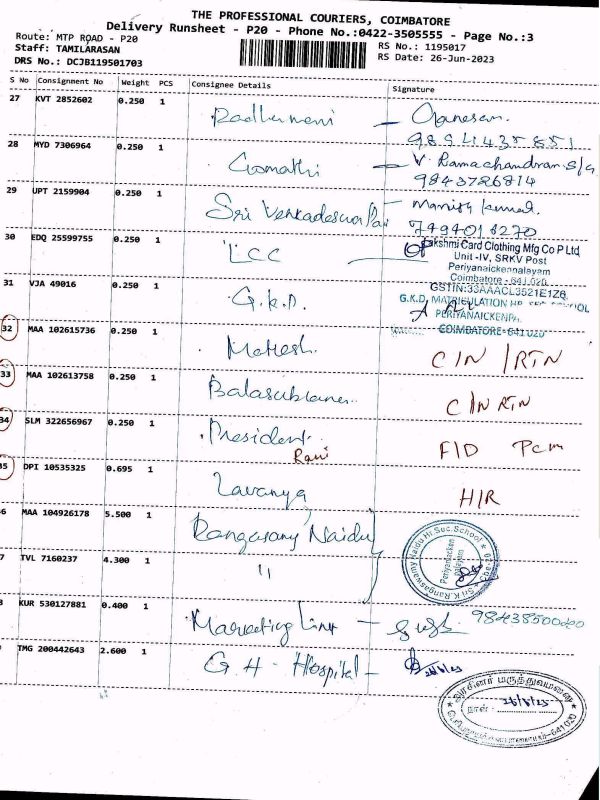 THE PROFESSIONAL COURIERS, COIMBATORE
Delivery Runsheet - P20 - Phone No.:0422-3505555 - Page No.:3
Route: MTP ROAD - P20
Staff: TAMILARASAN
DRS No.: DCJB119501703
RS No.: 1195017
RS Date: 26-Jun-2023
S No Consignment No Weight PCS Consignee Details Signature
27 KVT 2852602 0.250 1 Radhamani - Ganesan
28 MYD 7306964 0.250 1 Gomathi - V. Ramachandran S/G
9843726814
29 UPT 2159904 0.250 1 Sri - Manish kumar.
30 EDQ 25599755 0.250 1 LCC
Lakshmi Card Clothing Mfg Co P Ltd
Unit -IV, SRKV Post
Periyanaickenpalayam
Coimbatore - 641 020
GSTIN:33AAACL3521E1Z8
31 VJA 49016 0.250 1 G.K.D.
G.K.D. MATRICULATION HR SEC SCHOOL
PERIYANAICKENPA
COIMBATORE-641 020
32 MAA 102615736 0.250 1 Mahesh. C/N /RTN
33 MAA 102613758 0.250 1 C/N RTN
34 SLM 322656967 0.250 1 President F/D Pcm
Rani
35 DPI 10535325 0.695 1 Lavanya H/R
6 MAA 104926178 5.500 1 Rangasamy Naidu
7 TVL 7160237 4.300 1 "
Sri K.Rangaswamy Naidu Hr.Sec.School
Periyanaicken
Palayam
KUR 530127881 0.400 1 Marketing Link - 9843850000
TMG 200442643 2.600 1 G.H - Hospital - 26/6/23
அரசினர் மருத்துவமனை
நாள் : 26/6/23